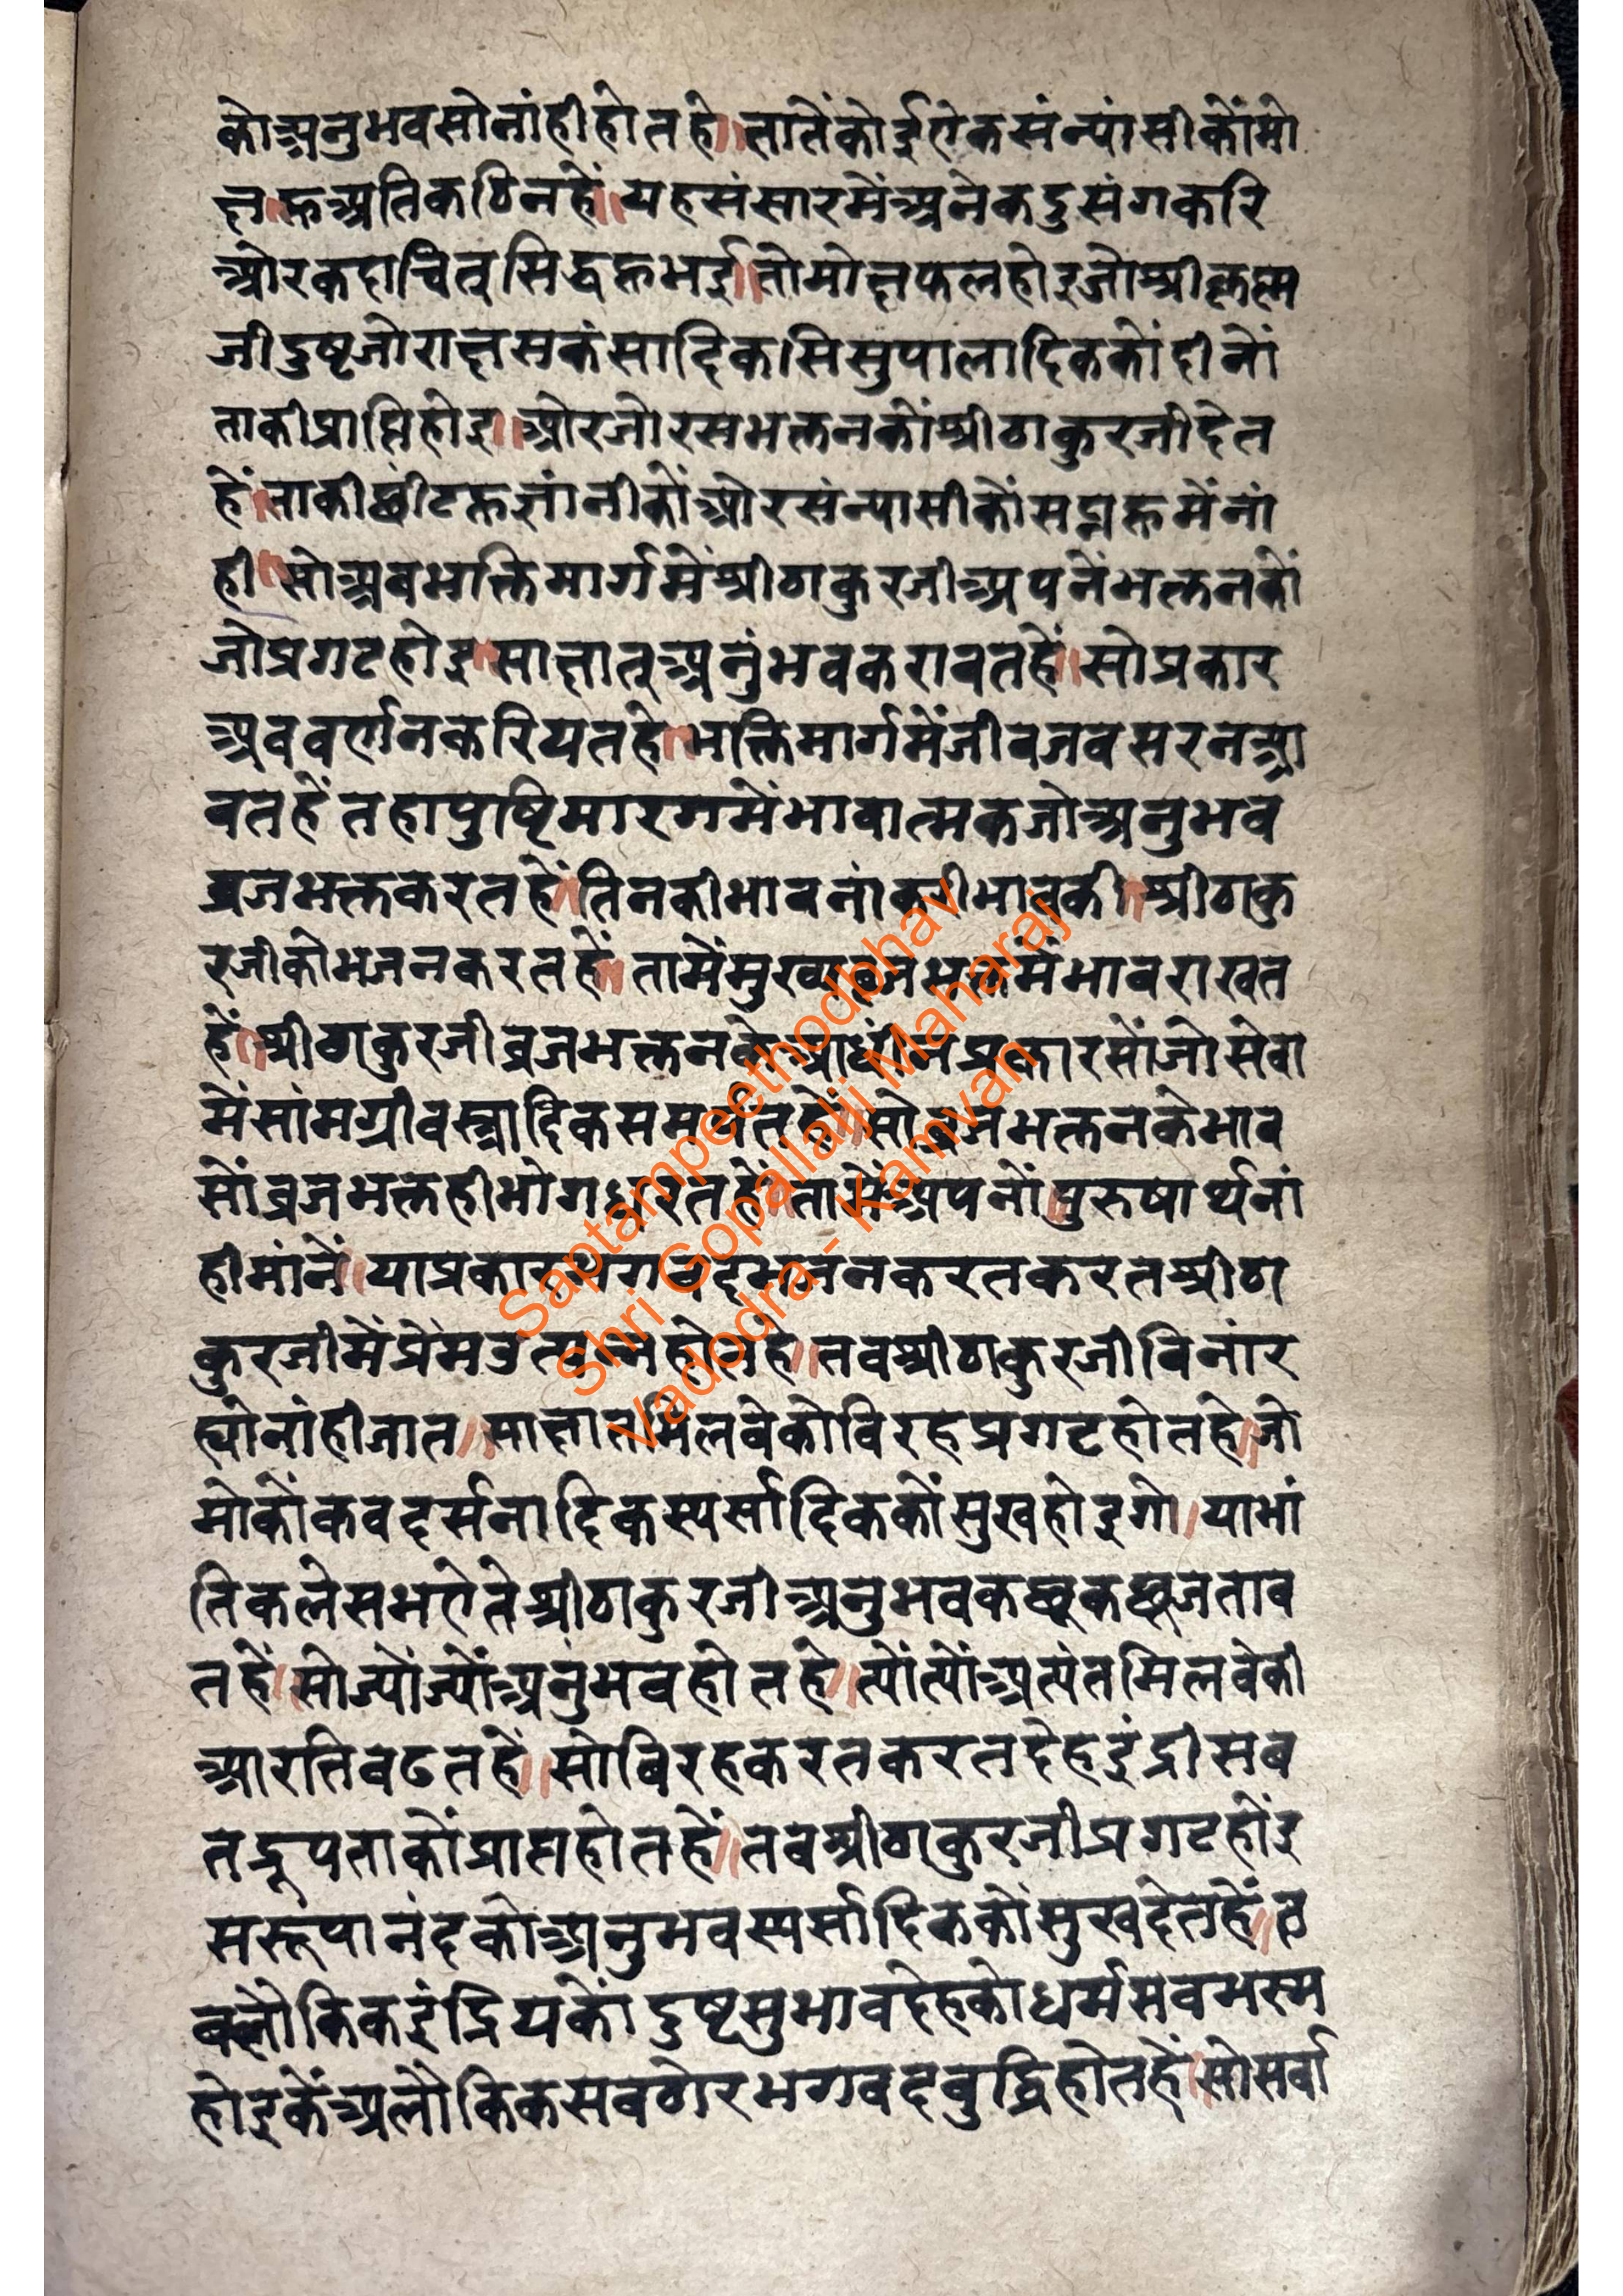 कोअनुभवसोनांहीहोतहे॥तातेंकोईऐकसंन्यांसीकोंमो
क्षहूअतिकठिनहें॥यहसंसारमेंअनेकदुसंगकरि
ओरकदाचित्सिद्धहूभई॥तोमोक्षफलहोइजोश्रीकृष्ण
जीदुष्टजोराक्षसकंसादिक।सिसुपालादिककोंदीनों
ताकीप्राप्तिहोइ॥ओरजोरसभक्तनकोंश्रीठाकुरजीदेत
हें॥ताकीछींटहूज्ञांनीकोंओरसंन्यासीकोंसप्नहूमेंनां
ही॥सोअबभक्तिमार्गमेंश्रीठाकुरजीअपनेंभक्तनकों
जोप्रगटहोइ॥साक्षात्अनुंभवकरावतहें॥सोप्रकार
अबवर्णनकरियतहे॥भक्तिमार्गमेंजीवजबसरनआ
वतहेंतहापुष्टिमारगमेंभावात्मकजोअनुभव
व्रजभक्तकरतहें॥तिनकीभावनांकरीभावकी॥श्रीठाकु
रजीकोभजनकरतहें॥तामेंमुख्यव्रजभक्तमेंभावराखत
हें॥श्रीठाकुरजीव्रजभक्तनकेआधीनप्रकारसोंजोसेवा
मेंसांमग्रीवस्त्रादिकसमर्पतहें॥सोव्रजभक्तनकेभाव
सोंव्रजभक्तहीभोगधरतहें॥तामेंअपनोंपुरुषार्थनां
हीमांनें॥याप्रकारभगवदभजनकरतकरतश्रीठा
कुरजीमेंप्रेमउत्पन्नहोतहे॥तबश्रीठाकुरजीबिनांर
ह्योनांहीजात॥साक्षातमिलवेकोविरहप्रगटहोतहे॥जो
मोकोंकबदर्सनादिकस्पर्सादिककोंसुखहोइगो।याभां
तिकलेसभऐतेश्रीठाकुरजीअनुभवकछूकछूजताव
तहें॥सोज्योंज्योंअनुंभवहोतहे॥त्योंत्योंअत्यंतमिलवेकी
आरतिबढतहें॥सोबिरहकरतकरतदेहइंद्रीसब
तद्रूपताकोंप्राप्तहोतहें॥तबश्रीठाकुरजीप्रगटहोंइ
सरूपानंदकोअनुभवस्पर्सादिककोंसुखदेतहें॥त
बलौकिकइंद्रियकोंदुष्टसुभावदेहकोधर्मसबभस्म
होइकेंअलौकिकसबठोरभगवदबुद्धिहोतहें॥सोसर्वा
Saptampeethodbhav
Shri Gopallalji Maharaj
Vadodra - Kamvan